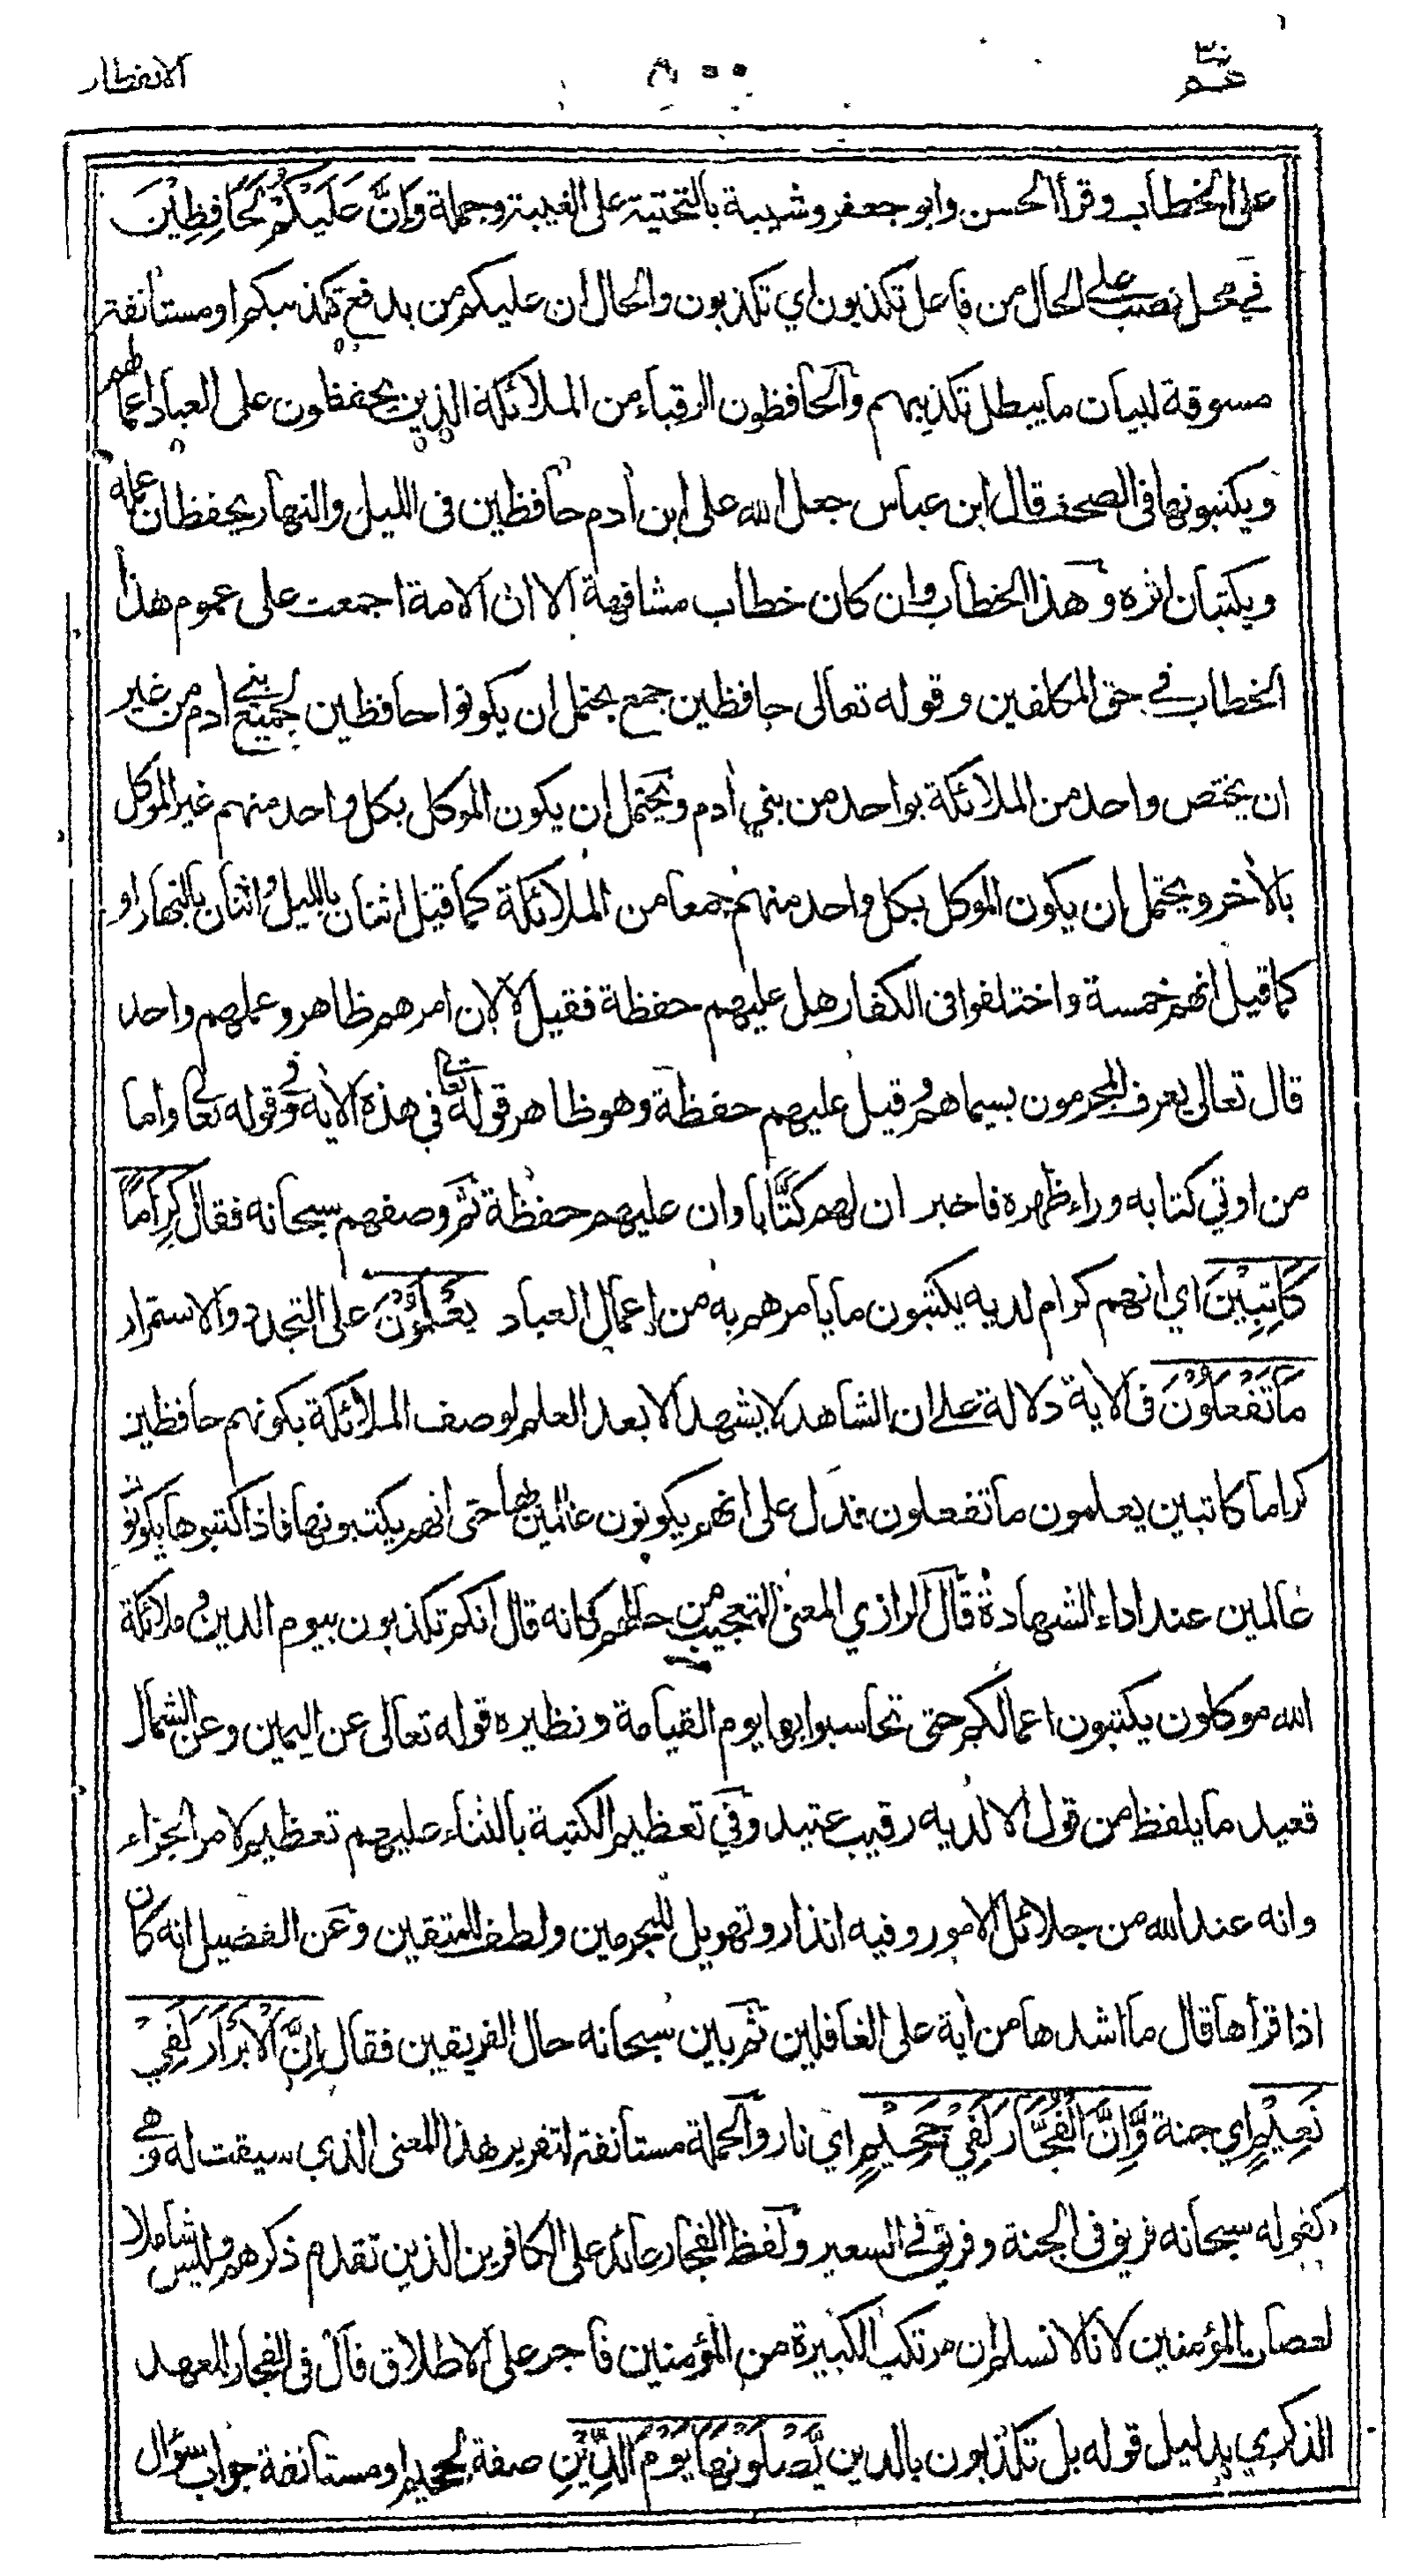 عم
٨٠٠
الانفطار
على الخطاب وقرأ الحسن وابو جعفر وشيبة بالتحتية على الغيبة وجملة وَاِنَّ عَلَيْكُمْ لَحَافِظِيْنَ
في محل نصب على الحال من فاعل تكذبون اي تكذبون والحال ان عليكم من يدفع تكذيبكم او مستأنفة
مسوقة لبيان ما يبطل تكذيبهم والحافظون الرقباء من الملائكة الذين يحفظون على العباد اعمالهم
ويكتبونها في الصحف قال ابن عباس جعل الله على ابن أدم حافظين في الليل والنهار يحفظان عمله
ويكتبان اثره وهذا الخطاب وان كان خطاب مشافهة الا ان الامة اجمعت على عموم هذا
الخطاب في حق المكلفين وقوله تعالى حافظين جمع يحتمل ان يكونوا حافظين لجميع بني ادم من غير
ان يختص واحد من الملائكة بواحد من بني أدم ويحتمل ان يكون الموكل بكل واحد منهم غير الموكل
بالأخر ويحتمل ان يكون الموكل بكل واحد منهم جمعا من الملائكة كما قيل اثنان بالليل واثنان بالنهار او
كما قيل انهم خمسة واختلفوا في الكفار هل عليهم حفظة فقيل لا لان امرهم ظاهر وعملهم واحد
قال تعالى يعرف المجرمون بسيماهم وقيل عليهم حفظة وهو ظاهر قوله تعالى في هذه الأية وفي قوله تعالى واما
من اوتي كتابه وراء ظهره فاخبر ان لهم كتابا وان عليهم حفظة ثم وصفهم سبحانه فقال كِرَامًا
كَاتِبِيْنَ اي انهم كرام لديه يكتبون ما يأمرهم به من اعمال العباد يَعْلَمُوْنَ على التجدد والاستمرار
مَا تَفْعَلُوْنَ في الاية دلالة على ان الشاهد لا يشهد الا بعد العلم لوصف الملائكة بكونهم حافظين
كراما كاتبين يعلمون ما تفعلون فدل على انهم يكونون عالمين بها حتى انهم يكتبونها فاذا كتبوها يكونون
عالمين عند اداء الشهادة قال الرازي المعنى التعجيب من حالهم كانه قال انكم تكذبون بيوم الدين و ملائكة
الله موكلون يكتبون اعمالكم حتى تحاسبوا بها يوم القيامة ونظيره قوله تعالى عن اليمين وعن الشمال
قعيد ما يلفظ من قول الا لديه رقيب عتيد وفي تعظيم الكتبة بالثناء عليهم تعظيم لامر الجزاء
وانه عند الله من جلائل الامور وفيه انذار وتهويل للمجرمين ولطف للمتقين وعن الفضيل انه كان
اذا قرأها قال ما اشدها من أية على الغافلين ثم بين سبحانه حال الفريقين فقال اِنَّ الْاَبْرَارَ لَفِيْ
نَعِيْمٍ اي جنة وَّاِنَّ الْفُجَّارَ لَفِيْ جَحِيْمٍ اي نار والجملة مستأنفة لتقرير هذا المعنى الذي سيقت له وهي
كقوله سبحانه فريق في الجنة وفريق في السعير ولفظ الفجار عائد على الكافرين الذين تقدم ذكرهم وليس شاملا
لعصاة المؤمنين لانا لا نسلم ان مرتكب الكبيرة من المؤمنين فاجر على الاطلاق فأل في الفجار للعهد
الذكري بدليل قوله بل تكذبون بالدين يَّصْلَوْنَهَا يَوْمَ الدِّيْنِ صفة لجحيم او مستانفة جواب سؤال